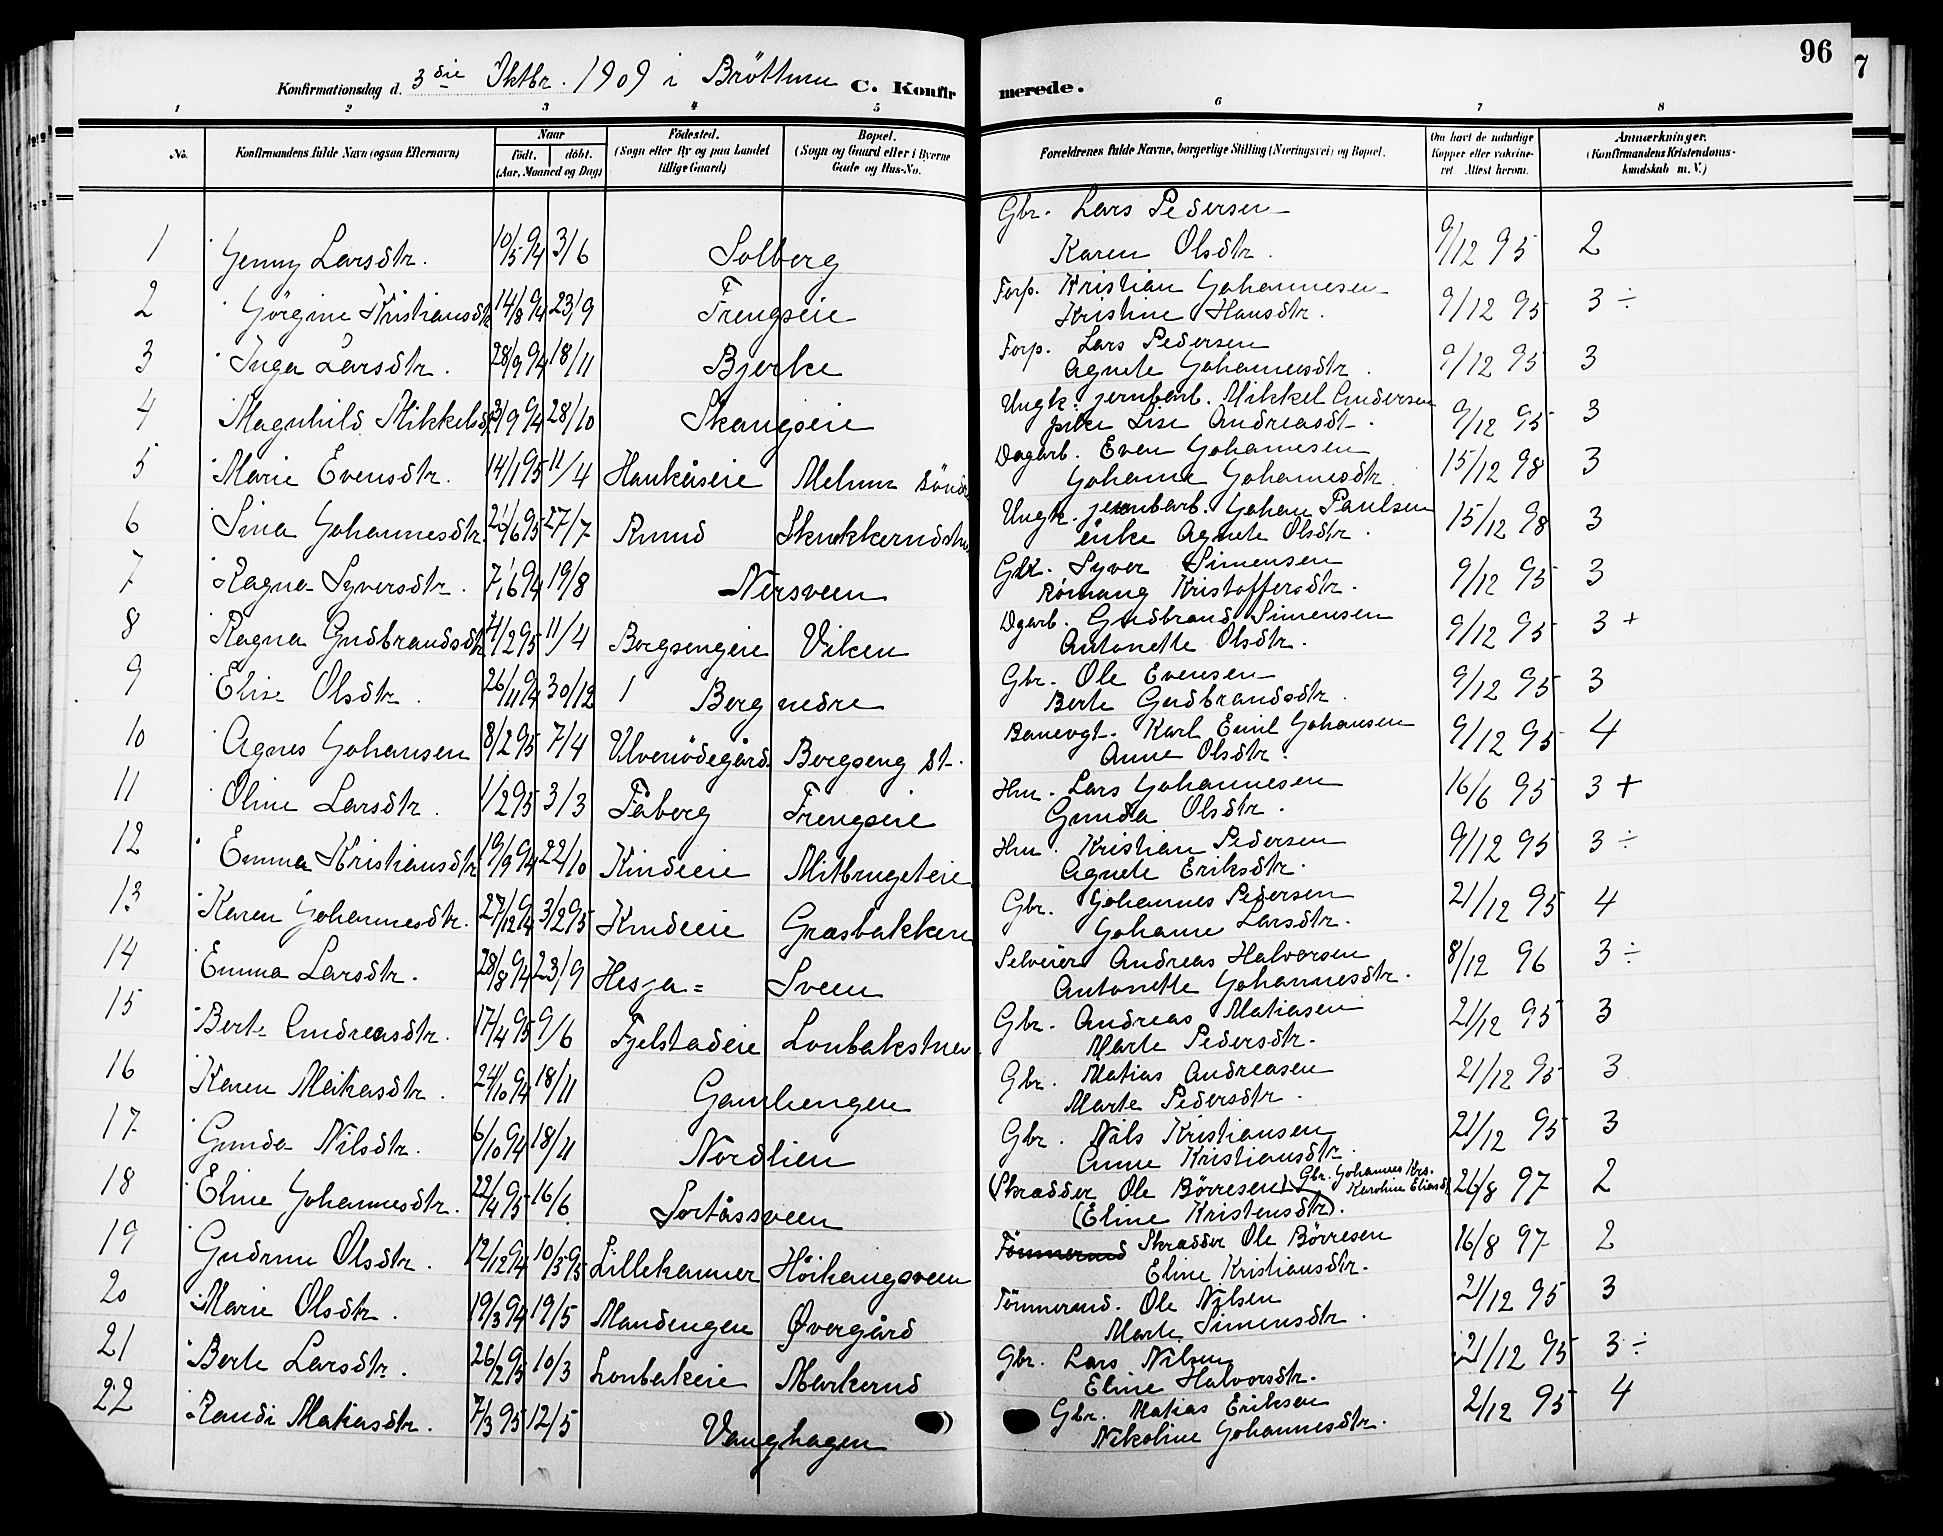 96
7
Konfirmationsdag d. 3die Oktbr. 1909 i Bröttum C. Konfirmerede.
1 2 3 4 5 6 7 8
No. Konfirmandens fulde Navn (ogsaa Efternavn) Naar födt. döbt. (Aar, Maaned og Dag) Födested. (Sogn eller By og paa Landet tillige Gaard) Bopæl. (Sogn og Gaard eller i Byerne Gade og Hus-No. Forældrenes fulde Navne, borgerlige Stilling (Næringsvei) og Bopæl. Om havt de naturlige Kopper eller vaccineret Attest herom. Anmærkninger. (Konfirmandens Kristendomskundskab m. V.)
1 Jenny Larsdtr. 10/5 94 3/6 Solberg Gbr. Lars Pedersen Karen Olsdtr. 9/12 95 2
2 Jörgine Kristiansdtr 14/8 94 23/9 Frengseie Forp. Kristian Johannesen Kristine Hansdtr. 9/12 95 3 ÷
3 Inga Larsdtr. 28/9 94 18/11 Bjerke Forp. Lars Pedersen Agnete Johannesdtr. 9/12 95 3
4 Magnhild Mikkelsd. /9 94 28/10 Skangseie Ungk. jernbarb. Mikkel Andersen pike Lise Andreasdt. 9/12 95 3
5 Marie Evensdtr. 14/1 95 11/4 Hankåseie Melum Dagarb. Even Johannesen Johanne Johannesdtr. 15/12 98 3
6 Sina Johannesdtr. 2/6 95 27/7 Ruud Ungk. jernbarb. Johan Paulsen enke Agnete Olsdtr. 15/12 98 3
7 Ragna Syversdtr. 7/6 94 19/8 Nersveen Gbr. Syver Simensen Romaug Kristoffersdtr. 9/12 95 3
8 Ragna Gudbrandsdtr /2 95 11/4 Bergsengeie Viken Dgarb. Gudbrand Simensen Antonette Olsdtr. 9/12 95 3 +
9 Elise Olsdtr. 26/11 94 30/12 Berg nedre Gbr. Ole Evensen Berte Gudbrandsdtr. 9/12 95 3
10 Agnes Johansen 8/2 95 7/4 Ulverödegård Bergseng St. Banevogt. Karl Emil Johansen Anne Olsdtr. 9/12 95 4
11 Oline Larsdtr. 1/2 95 3/3 Fåberg Frengseie Hm. Lars Johannesen Gunda Olsdtr. 16/6 95 3 +
12 Emma Kristiansdtr. 19/9 94 22/10 Kindeeie Mitbrugeteie Hm. Kristian Pedersen Agnete Eriksdtr. 9/12 95 3 ÷
13 Karen Johannesdtr. 27/12 94 3/2 95 Kindeeie Græsbakken Gbr. Johannes Pedersen Johanne Larsdtr. 21/12 95 4
14 Emma Larsdtr. 28/8 94 23/9 Hesja= Sveen Selveier Andreas Halvorsen Antonette Johannesdtr. 8/12 96 3 ÷
15 Berte Andreasdtr. 17/4 95 9/6 Fjelstadeie Lonbakstuen Gbr. Andreas Matiasen Marte Pedersdtr. 21/12 95 3
16 Karen Matiasdtr. 24/10 94 18/11 Gamlengen Gbr. Matias Andreasen Marte Pedersdtr. 21/12 95 3
17 Gunda Nilsdtr. 6/10 94 18/11 Nordlien Gbr. Nils Kristiansen Anne Kristiansdtr. 21/12 95 3
18 Eline Johannesdtr. 22/4 95 16/6 Sortåssveen (Skrædder Ole Börresen) Gbr. Johannes Krs. Karoline Eliasd. (Eline Kristensdtr). 26/8 97 2
19 Gudrun Olsdtr. 12/12 94 10/5 95 Lillehammer Höihaugsveen Tömmermd Skrædder Ole Börresen Eline Kristiansdtr. 16/8 97 2
20 Marie Olsdtr. 19/3 94 19/5 Mandengen Øvergård Tömmermd. Ole Nilsen Marte Simensdtr. 21/12 95 3
21 Berte Larsdtr. 26/2 95 10/3 Lonbakeie Markerud Gbr. Lars Nilsen Eline Halvorsdtr. 21/12 95 3 ÷
22 Randi Matiasdtr. 7/3 95 12/5 Vanghagen Gbr. Matias Eriksen Nikoline Johannesdtr. 2/12 95 4